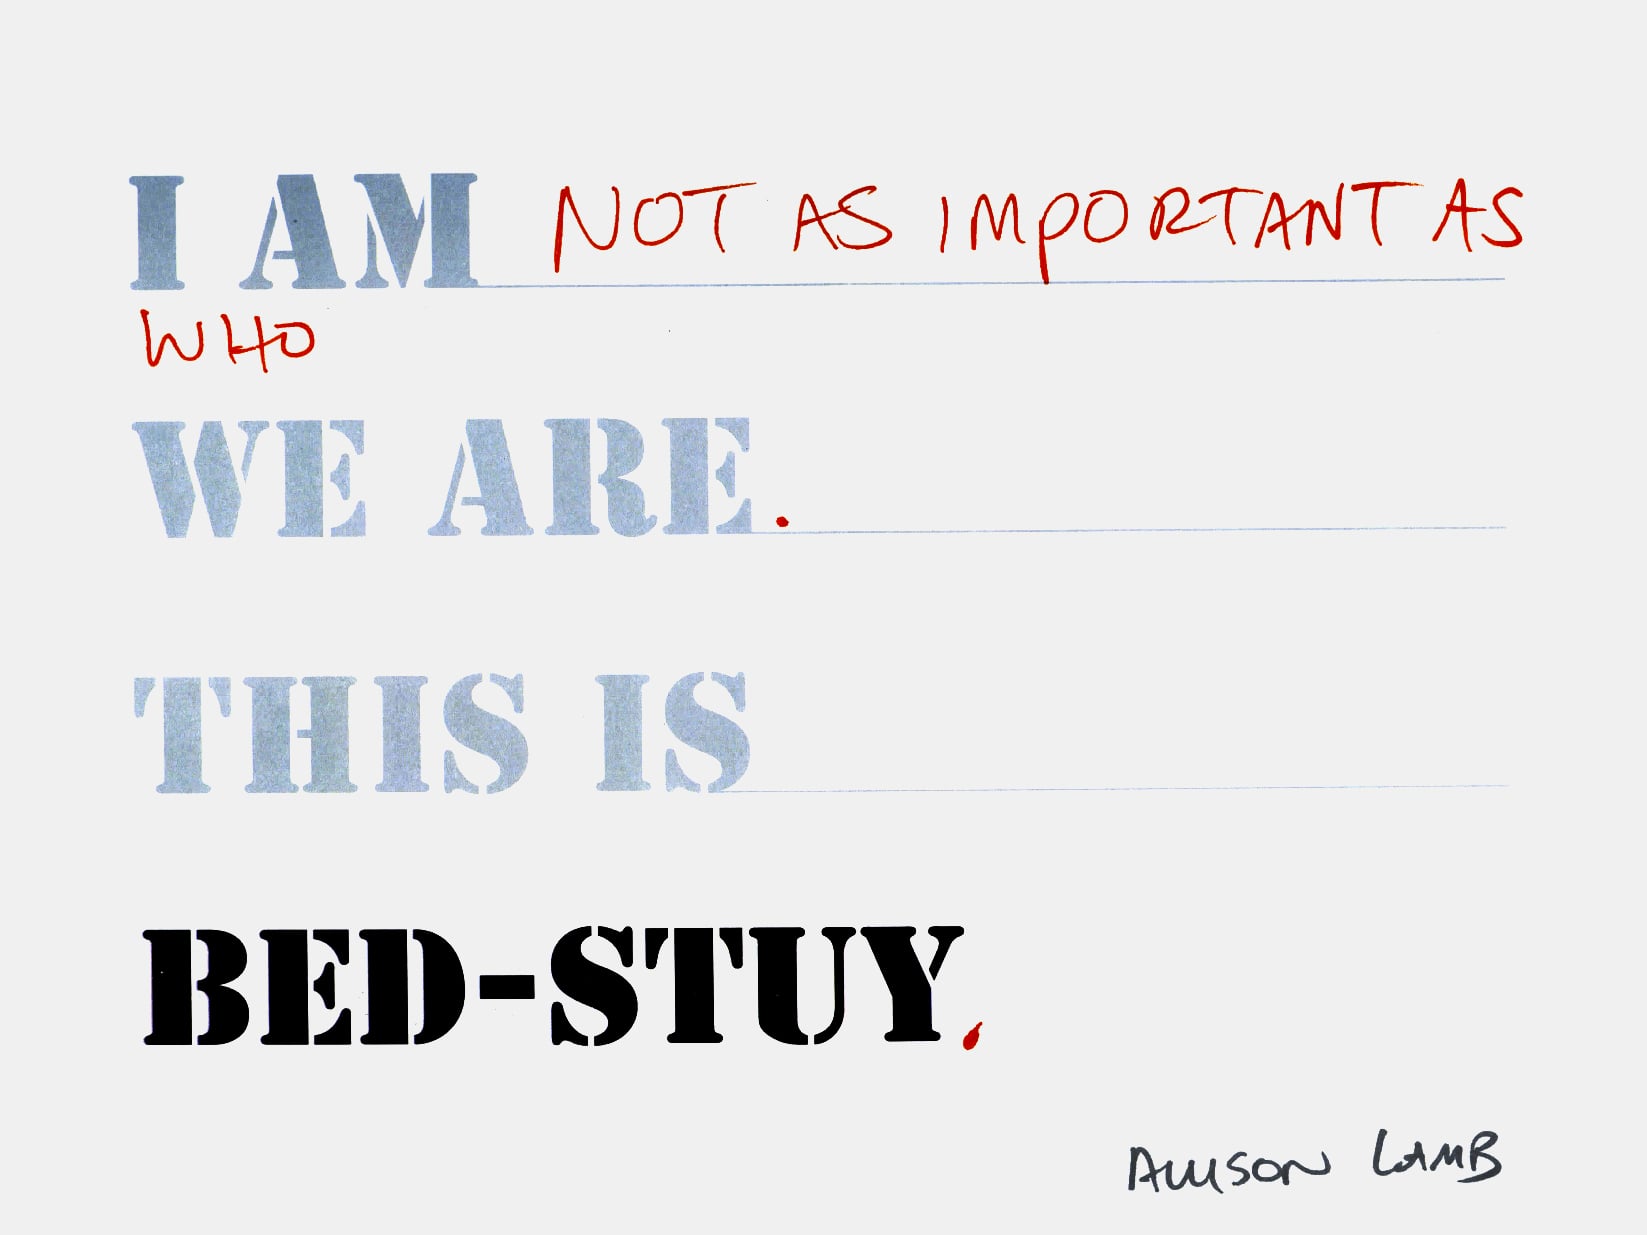 I AM NOT AS IMPORTANT AS
WHO
WE ARE.
THIS IS
BED-STUY.
ALLISON LAMB